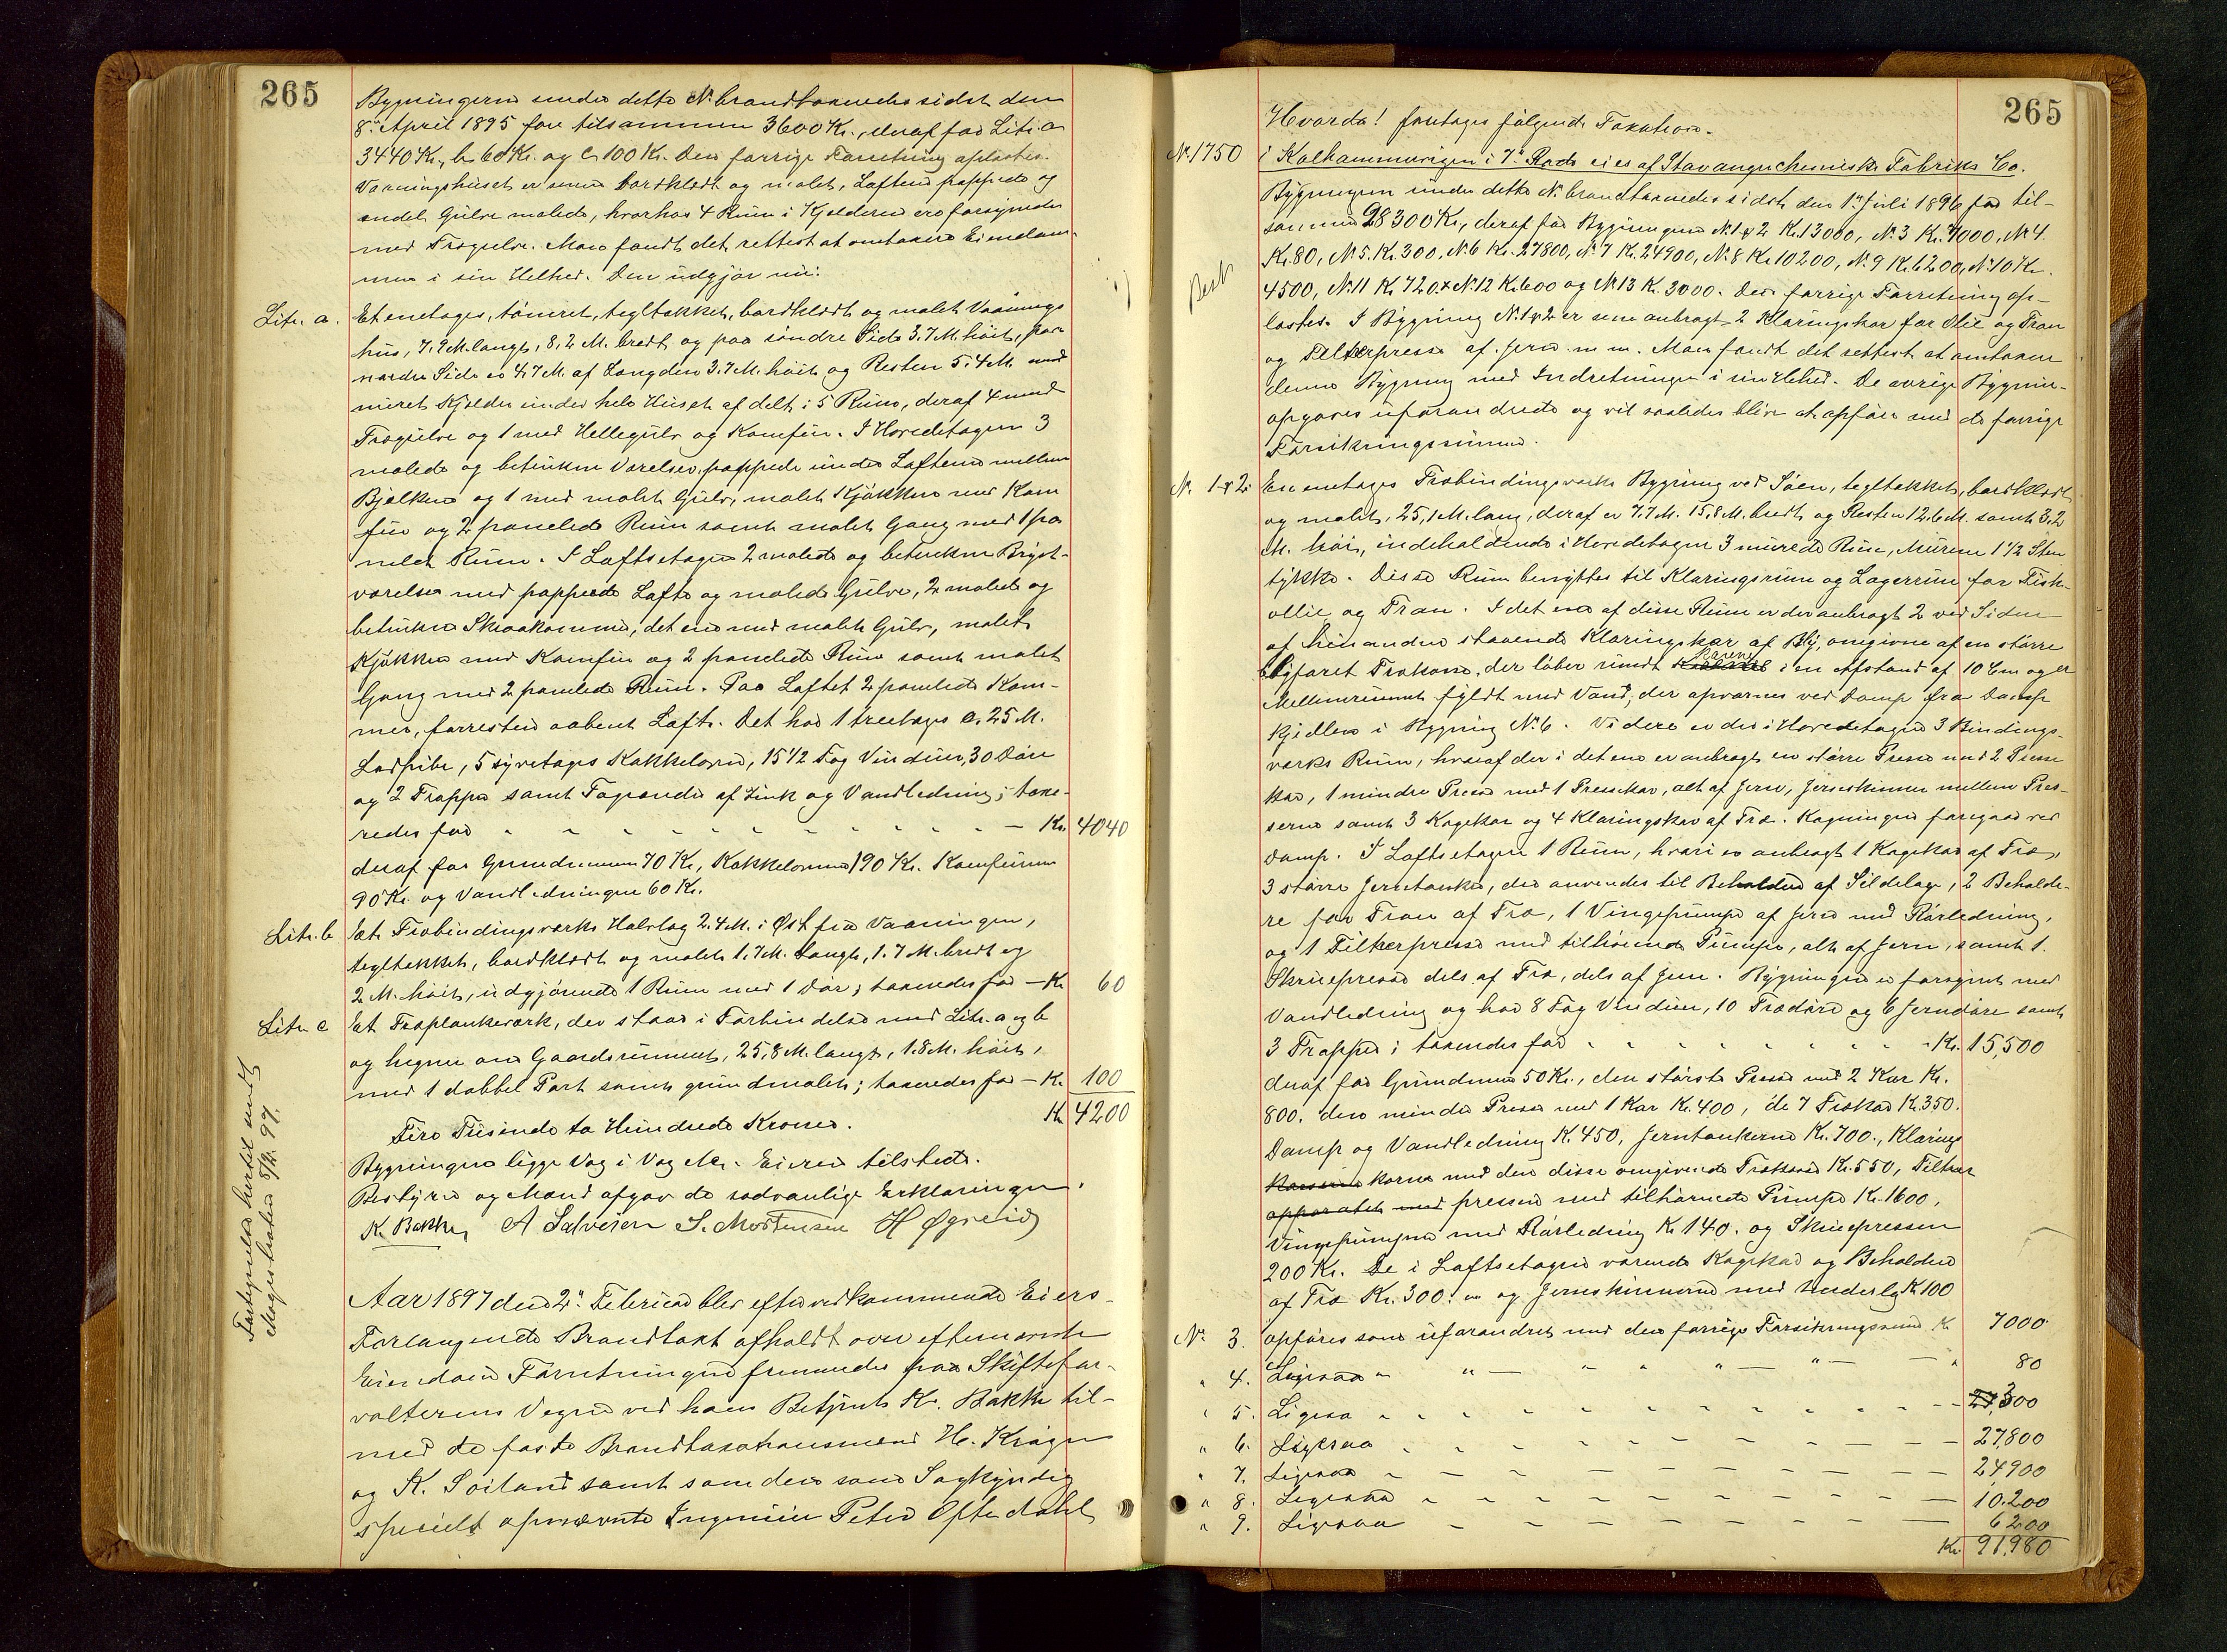 265
Bygningerne under dette No brandtaxeredes sidst den
8de April 1895 for tilsammen 3600 Kr., deraf for Litr. a
3440 Kr., b 60 Kr. og c 100 Kr. Den forrige Forretning oplæstes.
Vaaningshuset er senere bordklædt og malet, Loftene pappede og
endel Gulve malede, hvorhos 4 Rum i Kjælderen ere forsynede
med Trægulve. Man fandt det rettest at omtaxere Eiendom-
men i sin Helhed. Den udgjør nu:
Litr. a. Et enetages, tømret, tegltækket, bordklædt og malet Vaanings
hus, 7,9 M. langt, 8,2 M. bredt og paa søndre Side 3.7 M. høit, paa
nordre Side er 4.7 M. af Længden 3.7 M. høit og Resten 5.4 M. med
muret Kjælder under hele Huset afdelt i 5 Rum, deraf 4 med
Trægulve og 1 med Hellegulv og Komfur. I Hovedetagen 3
malede og betrukne Værelser, pappede under Loftene mellem
Bjælkerne og 1 med malet Gulv, malet Kjøkken med Kom
fur og 2 panelede Rum samt malet Gang med 1 pa
nelet Rum. I Loftsetagen 2 malede og betrukne Bryst-
værelser med pappede Lofte og malede Gulve, 2 malede og
betrukne Skraakammere, det ene med malet Gulv, malet
Kjøkken med Komfur og 2 panelede Rum samt malet
Gang med 2 panelede Rum. Paa Loftet 2 panelede Kam-
mer, forresten aabent Loft. Det har 1 treetages c. 25 M.
Lodpibe, 5 tyretages Kakkelovne, 15 1/2 Fag Vinduer, 30 Døre
og 2 Trapper samt Tagrender af Zink og Vandledning; taxe-
redes for - - - - - - - - - - Kr. 4040
deraf for Grundmuren 70 Kr., Kakkelovnene 190 Kr. Komfurene
90 Kr. og Vandledningen 60 Kr.
Litr. b Et Træbindingsværks Halvtag 2.4 M. i Øst fra Vaaningen,
tegltækket, bordklædt og malet 1.7 M. langt, 1.7 M. bredt og
2 M. høit, udgjørende 1 Rum med 1 Dør; taxeredes for - Kr. 60
Litr. c Et Træplankeværk, der staar i Forbindelse med Litr. a og b
og hegner om Gaardsrummet, 25,8 M. langt, 1.8 M. høit,
med 1 dobbel Port samt grundmalet; taxeredes for - Kr. 100
Kr. 4200
Fire Tusinde to Hundrede Kroner.
Bygningerne ligge Væg i Væg. Eieren tilstede.
Bestyrer og Mænd afgav de sædvanlige Erklæringer.
K. Bakke, A Salvesen S. Mortensen H Øgreid
Magistraten 5/4. 97.
Aar 1897 den 2den Februar blev efter vedkommende Eiers
Forlangende Brandtaxt afholdt over efternævnte
Eiendom Forretningen fremmedes paa Skiftefor-
valterens Vegne ved hans Betjent K. Bakke til-
med de faste Brandtaxationsmænd H. Krüger
og K. Soiland samt som den som Sagkyndig
specielt opnævnte Ingeniør Peter Eftedahl
265
Hvorda! foretages følgende Taxation.
No 1750 i Kalhammervigen i 7de Rode eies af Stavanger chemiske Fabriks Co.
Bygningerne under dette No brandtaxeredes sidst den 1ste Juli 1896 for til-
sammen 98300 Kr., deraf for Bygningerne No 1 & 2 Kr. 13000, No 3 Kr. 7000, No 4.
Kr. 80, No 5. Kr. 300, No 6 Kr. 27800, No 7 Kr. 24900, No 8 Kr. 10200, No 9 Kr. 6200, No 10 Kr.
4500, No 11 Kr. 720. No 12 Kr. 600 og No 13 Kr. 3000. Den forrige Forretning op-
læstes. I Bygning No 1 & 2 er sene anbragt 2 Klaringskar for Olie og Tran
og Filterpresse af Jern m. m. Man fandt det rettest at omtaxere
denne Bygning med Indretninger i sin Helhed. De øvrige Bygnin-
opgaves uforandrede og vil saaledes blive at opføre med de forrige
Forsikringssummer.
No. 1 & 2. En enetages Træbindingsværks Bygning ved Søen, tegltækket, bordklædt
og malet, 25,1 M. lang, deraf er 7.7 M. 15,8 M. bredt og Resten 12.6 M. samt 3,2
M. høi, indeholdende i Hovedetagen 3 murede Rum, Murene 1 1/2 Sten
tykke. Disse Rum benyttes til Klaringsrum og Lagerrum for Fisk-
ollie og Tran. I det ene af disse Rum er der anbragt 2 ved Siden
af hinanden staaende Klaringskar af Bly, omgivne af en større
blyforet Trækasse, der løber rundt Karene i en Afstand af 10 Cm og er
Mellemrummet fyldt med Vand, der opvarmes ved Damp fra Damp
kjedlen i Bygning No 6. Videre er der i Hovedetagen 3 Bindings-
værks Rum, hvoraf der i det ene er anbragt en større Presse med 2 Presse
kar, 1 mindre Presse med 1 Pressekar, alt af Jern, Jernskinner mellem Pres-
serne samt 3 Kogekar og 4 Klaringskar af Træ. Kogningen foregaar ved
Damp. I Loftsetagen 1 Rum, hvori er anbragt 1 Kogekar af Træ,
3 større Jerntanker, der anvendes til Beholdere af Sildelage, 2 Beholde-
re for Tran af Træ, 1 Vingepumpe af Jern med Rørledning,
og 1 Filterpresse med tilhørende Pumpe, alt af Jern, samt 1.
Skruepresse dels af Træ, dels af Jern. Bygningen er forsynet med
Vandledning og har 8 Fag Vinduer, 10 Trædøre og 6 Jerndøre samt
3 Trapper; taxeredes for - - - - - - - - Kr. 15,500
deraf for Grundmur 50 Kr., den største Presse med 2 Kar Kr.
800. den mindre Presse med 1 Kar Kr. 400, de 7 Trækar Kr. 350.
Damp og Vandledning Kr. 450, Jerntankerne Kr. 700., Klarings
karene med den disse omgivende Trækasse Kr. 550, Filtrer
apparatet med pressen med tilhørende Pumpe Kr. 1600,
Vingepumpen med Rørledning Kr 140. og Skruepressen
200 Kr. De i Loftsetagen værende Kogekar og Beholdere
af Træ Kr. 300. og Jernskinnerne med Underlag Kr 100
No. 3. opføres som uforandret med den forrige Forsikringssum Kr. 7000
" 4. Ligesaa - " - " - " - " 80
" 5. Ligesaa - - - - - - - - 300
" 6. Ligesaa - - - - - - - - 27,800
" 7. Ligesaa - - - - - - - - 24,900
" 8. Ligesaa - - - - - - - - 10,200
" 9. Ligesaa - - - - - - - - 6200
Kr. 91,980